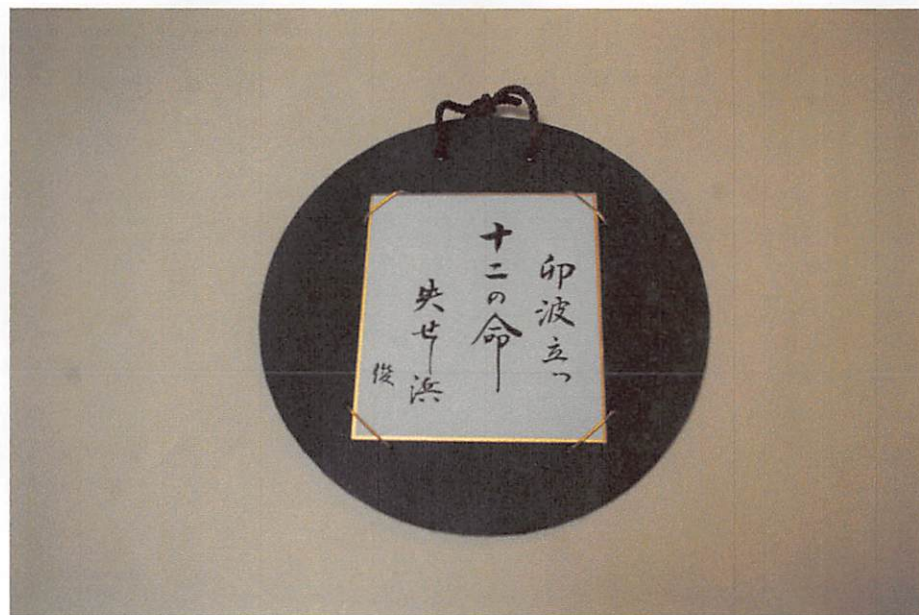 卯波立つ
十二の命
失せし浜
俊